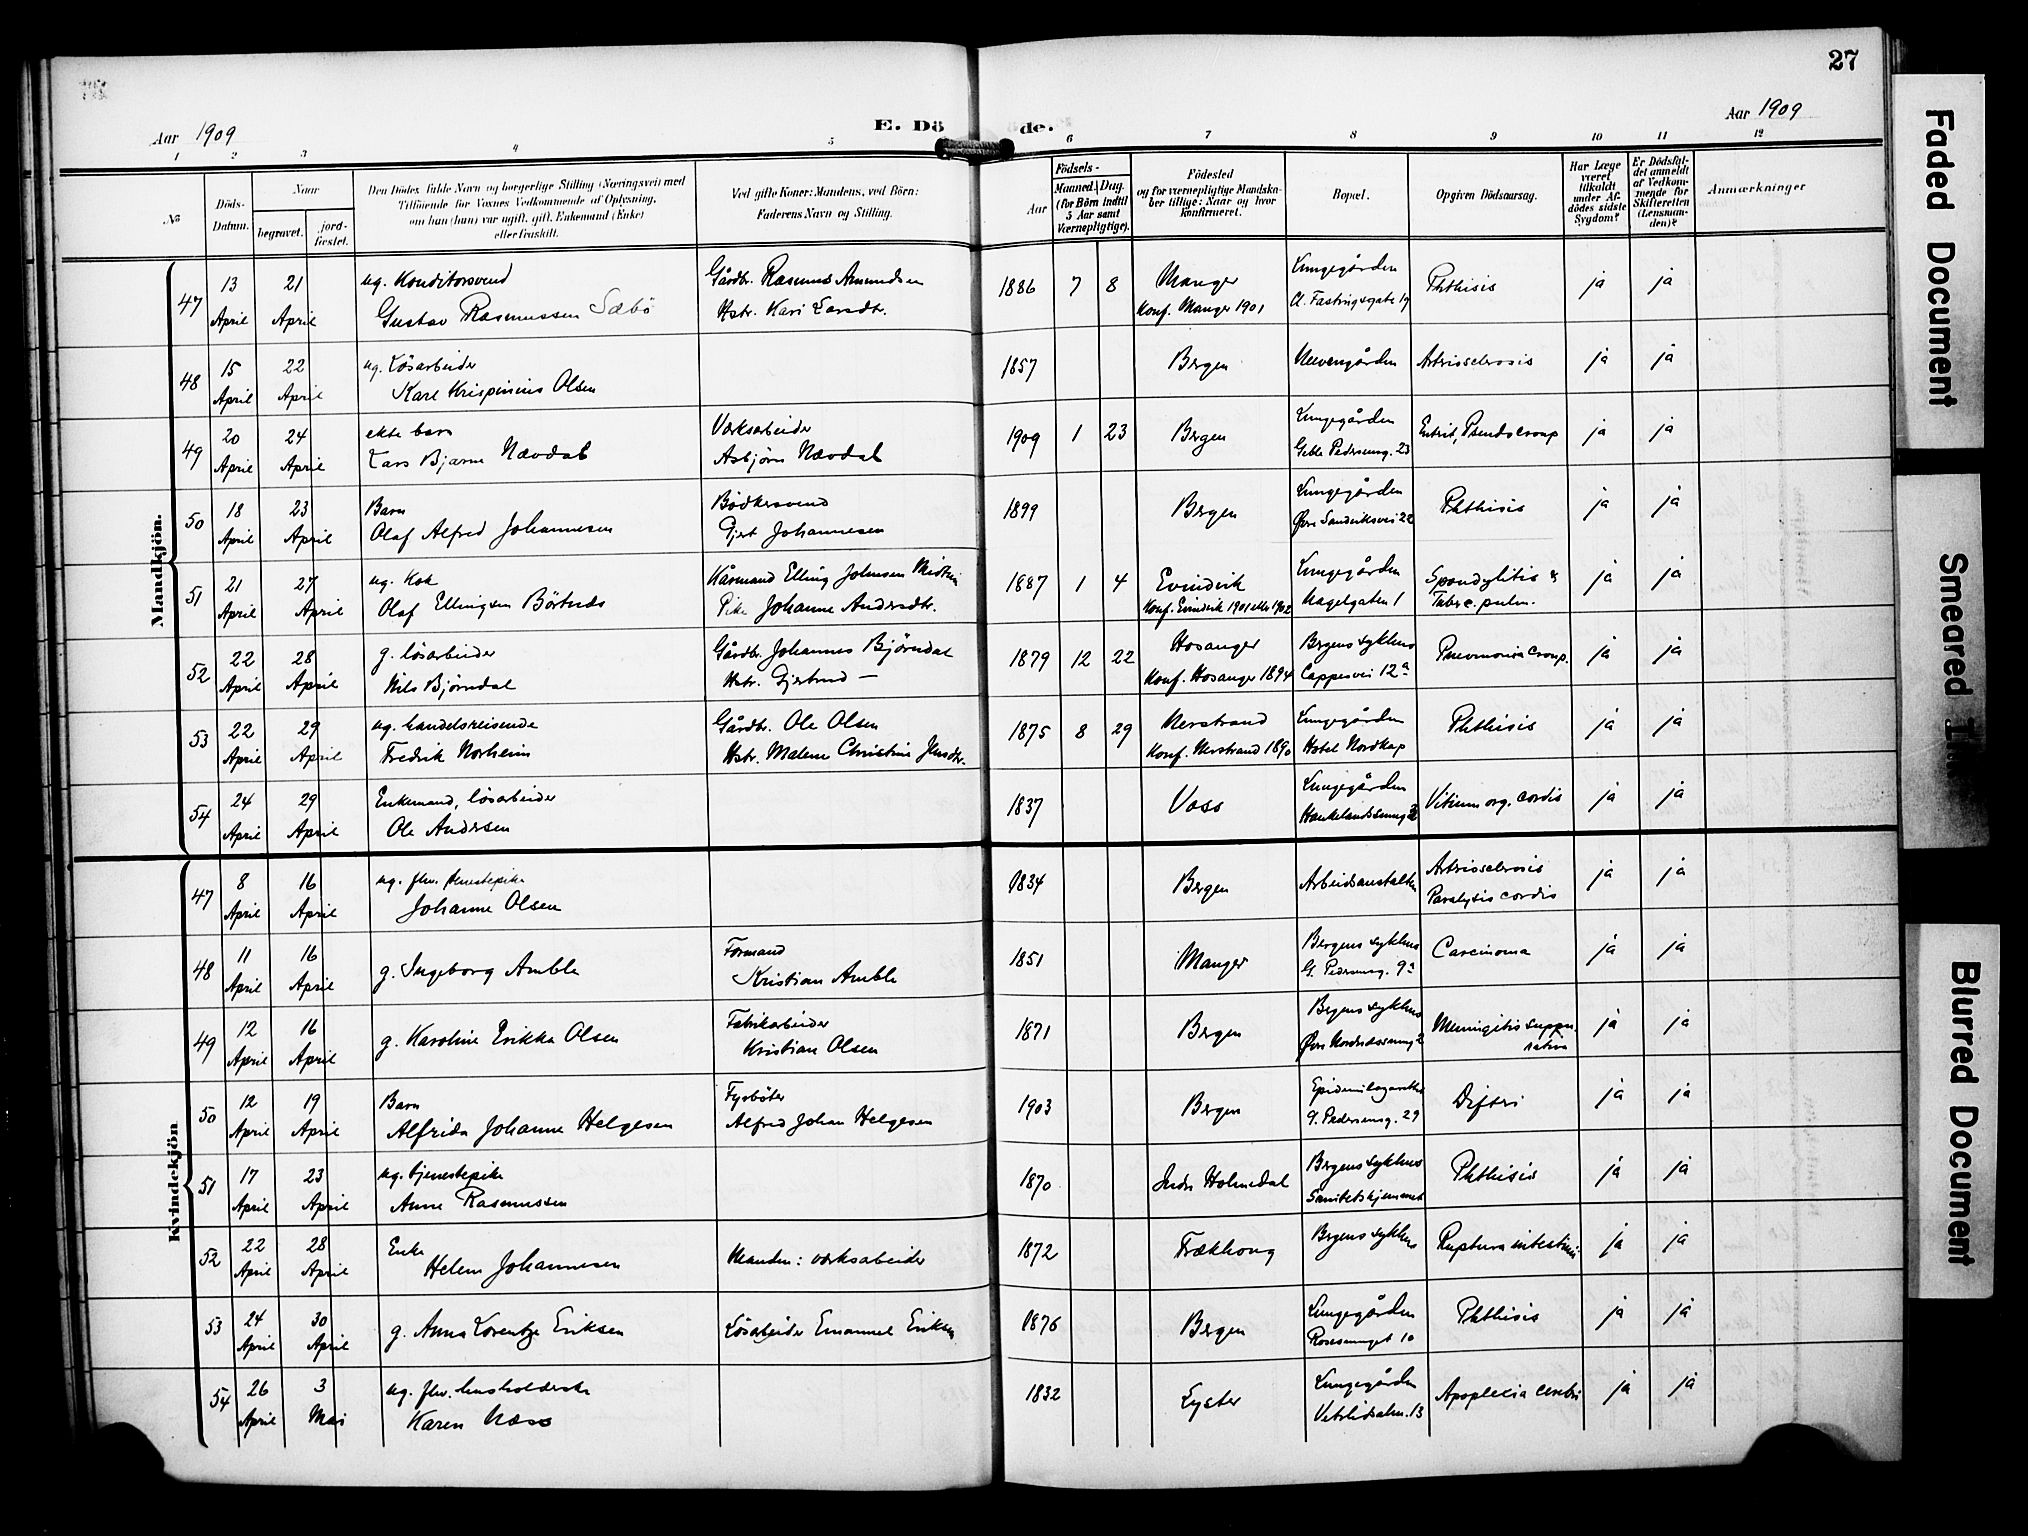 27
Aar 1909
E. Dö de.
Aar 1909
1 2 3 4 5 6 7 8 9 10 11 12
No
Döds-Datum.
Naar
begravet.
jord-fæstet.
Den Dödes fulde Navn og borgerlige Stilling (Næringsvei) med
Tilföiende for Voxnes Vedkommende af Oplysning,
om han (hun) var ugift, gift, Enkemand (Enke)
eller fraskilt.
Ved gifte Koner: Mandens, ved Börn:
Faderens Navn og Stilling.
Födsels-
Aar
Maaned. Dag.
(for Börn indtil
5 Aar samt
Værnepligtige).
Födested
og for værnepligtige Mandska-
ber tillige: Naar og hvor
konfirmeret.
Bopæl.
Opgiven Dödsaarsag.
Har Læge
været
tilkaldt
under Af-
dödes sidste
Sygdom?
Er Dödsfal-
det anmeldt
af Vedkom-
mende for
Skifteretten
(Lensman-
den)?
Anmærkninger
Mandkjön.
47 13 April 21 April ug. Konditorsvend Gustav Rasmussen Sæbö Gårdbr. Rasmus Amundsen Hstr. Kari Larsdtr. 1886 7 8 Manger Konf. Manger 1901 Lungegården Cl. Fastingsgate 19 Phthisis ja ja
48 15 April 22 April ug. Lösarbeider Karl Krispinius Olsen 1857 Bergen Neevengården Artriosclerosis ja ja
49 20 April 24 April ekte barn Lars Bjarne Nævdal Værksarbeider Asbjörn Nævdal 1909 1 23 Bergen Lungegården Geble Pedersensg. 23 Enterit, Pseudocroup ja ja
50 18 April 23 April Barn Olaf Alfred Johannesen Bödkersvend Gjert Johannesen 1899 Bergen Lungegården Øvre Sandviksvei 22 Phthisis ja ja
51 21 April 27 April ug. Kok Olaf Ellingsen Börtveds Kårmand Elling Johnsen Pike Johanne Andersdtr. 1887 1 4 Evindvik Konf. Evindvik 1901 eller 1902 Lungegården Nagelgaten 1 Spondylitis & Tuberc. pulm. ja ja
52 22 April 28 April g. lösarbeider Nils Bjørndal Gårdbr. Johannes Bjørndal Hstr. Gjertrud — 1879 12 22 Hosanger Konf. Hosanger 1894 Bergens sykehus Cappesvei 12a Pneumonia croup. ja ja
53 22 April 29 April ug. handelsreisende Fredrik Norheim Gårdbr. Ole Olsen Hstr. Malene Christine Jensdtr. 1875 8 29 Nerstrand Konf. Nerstrand 1890 Lungegården Hotel Nordkap Phthisis ja ja
54 24 April 29 April Enkemand, lösarbeider Ole Andersen 1837 Voss Lungegården Haukelandssmug Vitium org. cordis ja ja
Kvindekjön
47 8 April 16 April ug. fhv. tjenestepike Johanne Olsen 1834 Bergen Arbeidsanstalten Artriosclerosis Paralysis cordis ja ja
48 11 April 16 April g. Ingeborg Amble Formand Kristian Amble 1851 Manger Bergens sykehus G. Pedersensg. 9a Carcinoma ja ja
49 12 April 16 April g. Karoline Erikka Olsen Fabrikarbeider Kristian Olsen 1871 Bergen Bergens sykehus Øvre Nordnæssmug 2 Meningitis suppurativa ja ja
50 12 April 19 April Barn Alfrida Johanne Helgesen Fyrböter Alfred Johan Helgesen 1903 Bergen Epidemilazarethet G. Pedersensg. 29 Difteri ja ja
51 17 April 23 April ug. tjenestepike Anne Rasmussen 1870 Indre Holmedal Bergens sykehus Sanitetshjemmet Phthisis ja ja
52 22 April 28 April Enke Helene Johannesen Manden: værksarbeider 1872 Trækhong Bergens sykehus Ruptura intestini ja ja
53 24 April 30 April g. Anna Lorentze Eriksen Lösarbeider Emanuel Eriksen 1876 Bergen Lungegården Rosesmuget 10 Phthisis ja ja
54 26 April 3 Mai ug. fhv. husholderske Karen Næss 1832 Lyster Lungegården Vetrlidsalm. 13 Apoplexia cerebri ja ja
Faded Document
Smeared Ink
Blurred Document